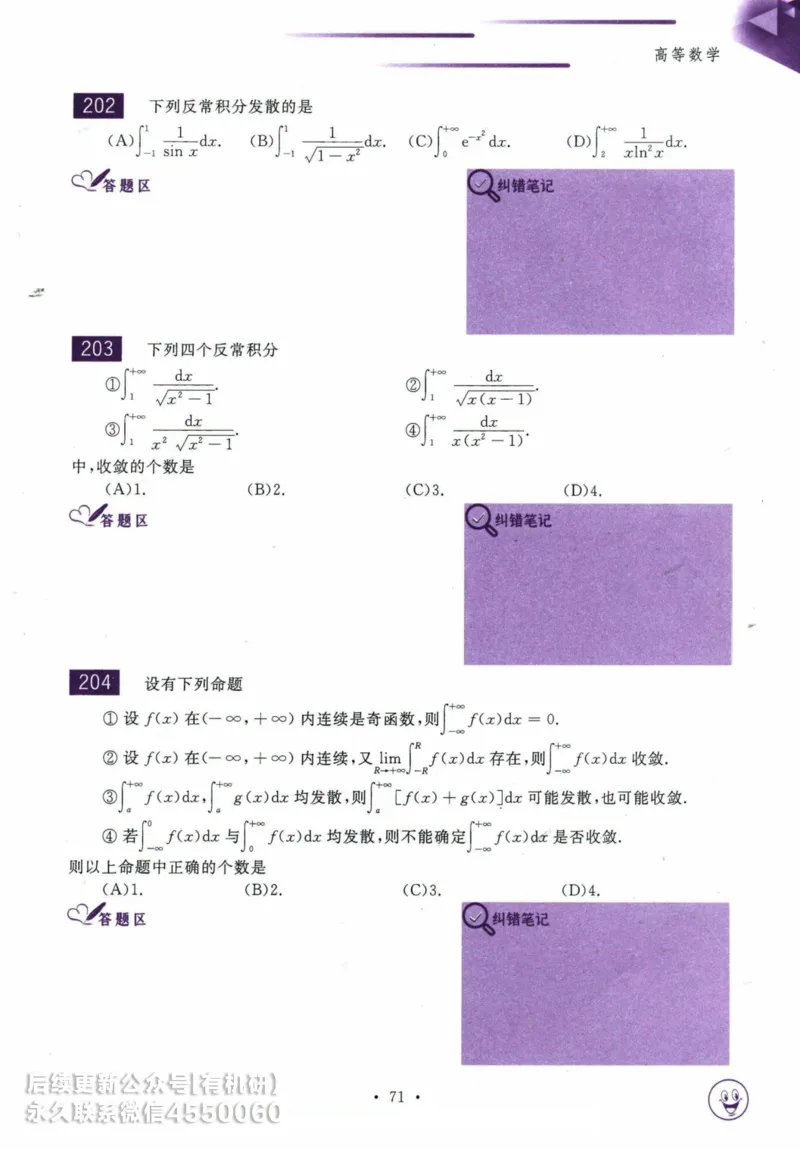 高等数学
202 下列反常积分发散的是
(A)∫_{-1}^{1} \frac{1}{\sin x}dx. (B)∫_{-1}^{1} \frac{1}{\sqrt{1-x^2}}dx. (C)∫_{0}^{+∞} e^{-x^2}dx. (D)∫_{2}^{+∞} \frac{1}{x\ln^2 x}dx.
答题区 纠错笔记
203 下列四个反常积分
①∫_{1}^{+∞} \frac{dx}{\sqrt{x^2-1}}. ②∫_{1}^{+∞} \frac{dx}{\sqrt{x(x-1)}}.
③∫_{1}^{+∞} \frac{dx}{x^2\sqrt{x^2-1}}. ④∫_{1}^{+∞} \frac{dx}{x(x^2-1)}.
中,收敛的个数是
(A)1. (B)2. (C)3. (D)4.
答题区 纠错笔记
204 设有下列命题
① 设 f(x) 在(-∞,+∞) 内连续是奇函数,则∫_{-∞}^{+∞} f(x)dx = 0.
② 设 f(x) 在(-∞,+∞) 内连续,又 \lim_{R→+∞}∫_{-R}^{R} f(x)dx 存在,则∫_{-∞}^{+∞} f(x)dx 收敛.
③∫_{a}^{+∞} f(x)dx,∫_{a}^{+∞} g(x)dx 均发散,则∫_{a}^{+∞} [f(x)+g(x)]dx 可能发散,也可能收敛.
④ 若∫_{-∞}^{0} f(x)dx 与∫_{0}^{+∞} f(x)dx 均发散,则不能确定∫_{-∞}^{+∞} f(x)dx 是否收敛.
则以上命题中正确的个数是
(A)1. (B)2. (C)3. (D)4.
答题区 纠错笔记
后续更新公众号[有机研]
永久联系微信4550060
· 71 ·